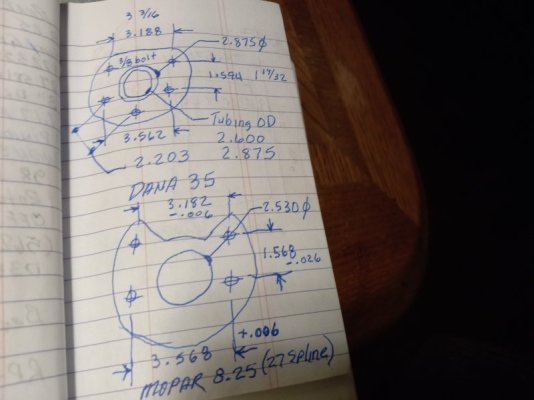 3 3/16
3.188
2.875Ø
3/8 bolt
1.594 1 19/32
Tubing OD
3.562
2.600
2.203
2.875
DANA 35
3.182
-.006
2.530Ø
1.568
-.026
+.006
3.568
MOPAR 8.25 (27 Spline)